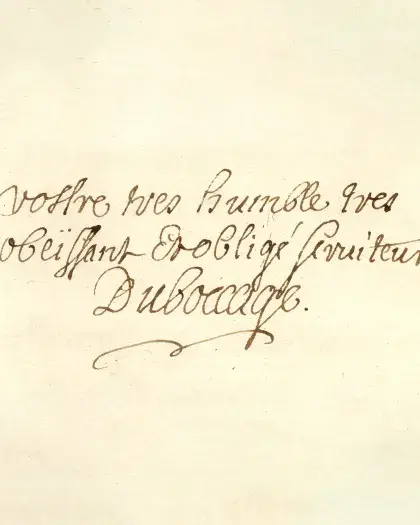 vostre tres humble tres
obeïssant et obligé seruiteur
Duboccage.